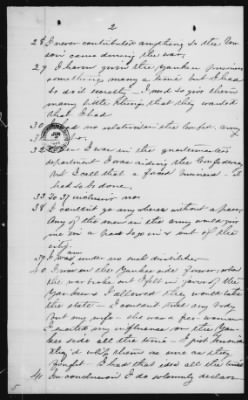 2
28 I never contributed anything to the Con
cause during the war,
29 I have given the Yankee prisoners
something many a time but I had
to do it secretly - I used to give them
many little things that they wanted
that I had
30 had no relations in the Confed. army
31
32 I was in the quartermasters
department I was aiding the Confederacy
but I call that a
had to be done.
33. To 37 inclusive no.
38 I couldn't go any where without a pass,
Any of the men in the army would
me in a pass to go in & out of the
city.
39 I am under no
40 I was on the Yankee side forever, when
the war broke out I felt in favor of the
Yankees I allowed they would take
the state - I couldn't my
but my wife - she was a free woman
I exerted my influence on the Yan
kee side all the time - I just
they'd whip them as one as they
- I had that idea all the time
41 In conclusion I do solemnly declare
5